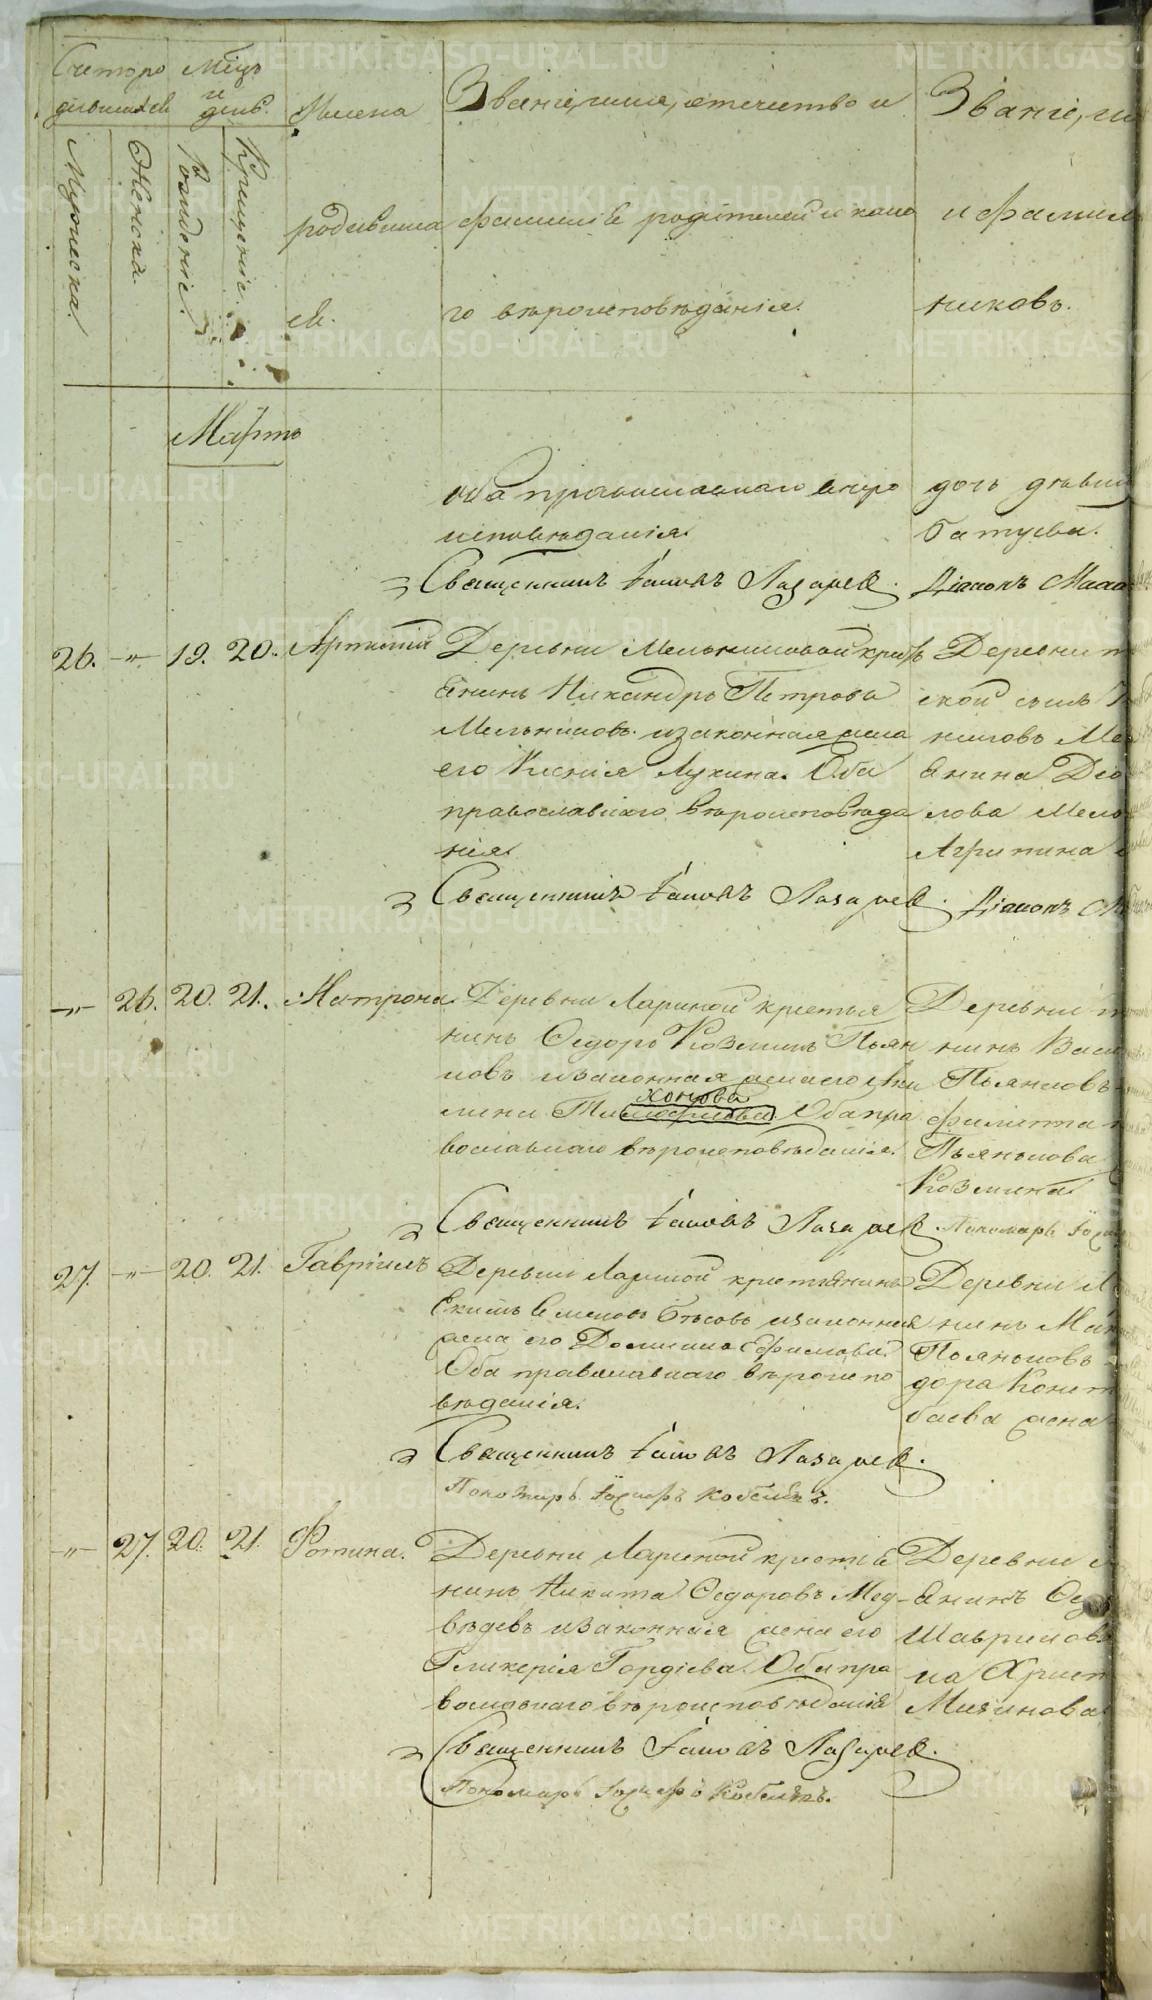 Счетъ ро
дившихся
Мѣцъ
и
день.
Мужеска.
Женска.
Рожденіе.
Крещеніе.
Имена
родивших
ся.
Званіе, имя, отечество и
фамилія родителей и како
го вѣроисповѣданія.
Званіе, и
и фамил
никовъ.
Мартъ
оба православнаго вѣро
исповѣданія.
Священникъ Іаковъ Лазаревъ.
дочь дѣви
батуева.
Діаконъ
26. -"- 19. 20. Артемій
Деревни Мельниковой кресть
янинъ Никандръ Петровъ
Мельниковъ и законная жена
его Ксенія Лукина. Оба
православнаго вѣроисповѣда
нія.
Священникъ Іаковъ Лазаревъ.
Деревни
ской сынъ
никовъ Ме
янина
лова Мель
Агрипина
Діаконъ
-"- 26. 20. 21. Матрона.
Деревни Лариной крестья
нинъ Ѳедоръ Козминъ Пьян
ковъ и законная жена его Аки
хонова
лина Ти мофеева. Оба пра
вославнаго вѣроисповѣданія.
Священникъ Іаковъ Лазаревъ.
Деревни
нинъ Васи
Пьянковъ
филакта
Пьянкова
Козмина
Пономарь
27. -"- 20. 21. Гавріилъ
Деревни Лариной крестьянинъ
Екимъ Семеновъ Бѣсовъ и законная
жена его Домника Ефимова.
Оба православнаго вѣроиспо
вѣданія.
Священникъ Іаковъ Лазаревъ.
Пономарь Іосифъ Кобелевъ.
Деревни Л
нинъ
Пьянковъ
дора
баева жена
-"- 27. 20. 21. Фотина.
Деревни Лариной крестья
нинъ Никита Ѳедоровъ Мед-
вѣдевъ и законная жена его
Гликерія Гордіева. Оба пра
вославнаго вѣроисповѣданія
Священникъ Іаковъ Лазаревъ.
Пономарь Іосифъ Кобелевъ.
Деревни
янинъ Ѳед
Шавриловъ
на Христ
METRIKI.GASO-URAL.RU